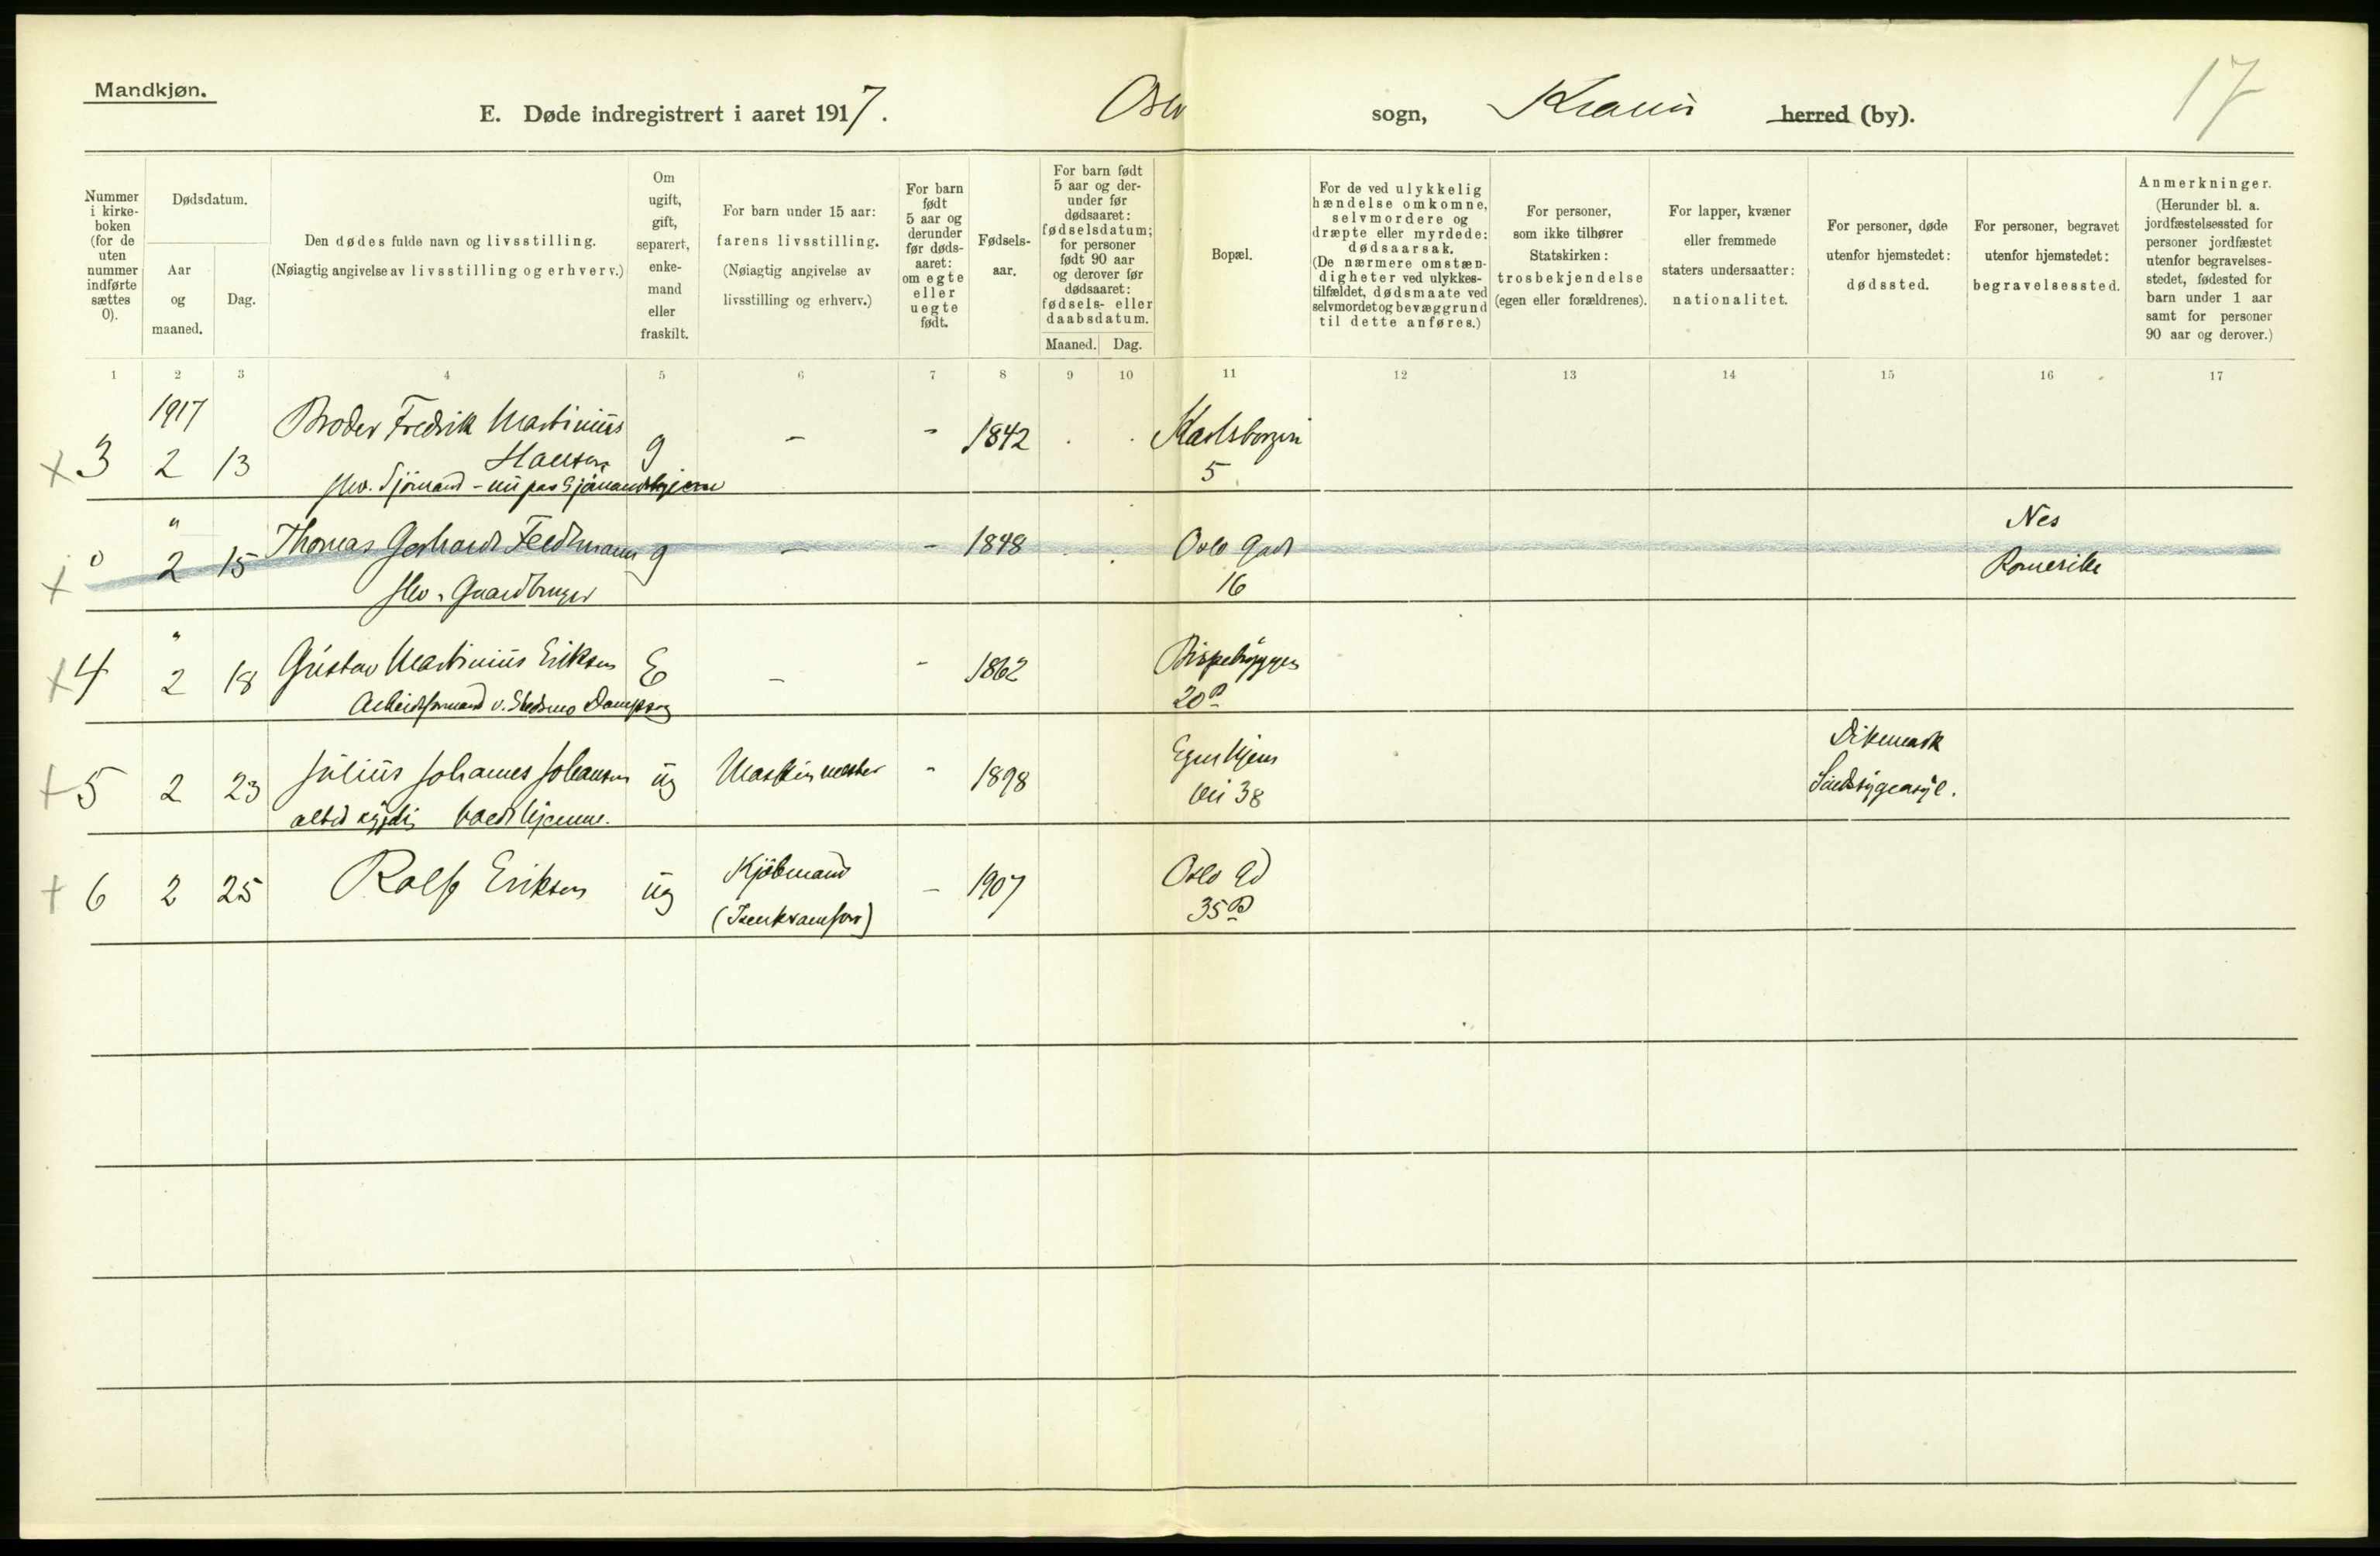 Mandkjøn.
E. Døde indregistrert i aaret 1917. Oslo sogn, Krania herred (by). 17
Nummer i kirke-boken (for de uten nummer indførte sættes 0).
Dødsdatum.
Aar og maaned.
Dag.
Den dødes fulde navn og livsstilling.
(Nøiagtig angivelse av livsstilling og erhverv.)
Om ugift, gift, separert, enke-mand eller fraskilt.
For barn under 15 aar:
farens livsstilling.
(Nøiagtig angivelse av
livsstilling og erhverv.)
For barn født 5 aar og derunder før døds-aaret: om egte eller uegte født.
Fødsels-aar.
For barn født 5 aar og der-under før dødsaaret: fødselsdatum; for personer født 90 aar og derover før dødsaaret: fødsels- eller daabsdatum.
Maaned. Dag.
Bopæl.
For de ved ulykkelig hændelse omkomne, selvmordere og dræpte eller myrdede: dødsaarsak. (De nærmere omstæn-digheter ved ulykkes-tilfældet, dødsmaate ved selvmordet og bevæggrund til dette anføres.)
For personer, som ikke tilhører Statskirken: trosbekjendelse (egen eller forældrenes).
For lapper, kvæner eller fremmede staters undersaatter: nationalitet.
For personer, døde utenfor hjemstedet: dødssted.
For personer, begravet utenfor hjemstedet: begravelsessted.
Anmerkninger.
(Herunder bl. a. jordfæstelsessted for personer jordfæstet utenfor begravelses-stedet, fødested for barn under 1 aar samt for personer 90 aar og derover.)
1 2 3 4 5 6 7 8 9 10 11 12 13 14 15 16 17
1917
+ 3 2 13 Broder Fredrik Martinius g - - 1842 Karlsborgvn
Hansen 5
fhv. Sjömand - nu paa Sjömandshjem
" Nes
+ 0 2 15 Thomas Gerhard Feedmann g - - 1848 Oslo Gad Romerike
fhv. Gaardbruger 16
"
+ 4 2 18 Gustav Martinius Eriksen E - - 1862 Bispebryggen
Arbeidsformand v. Skedsmo Dampsag 20B
+ 5 2 23 Julius Johannes Johansen ug Maskinmester - 1898 Egnehjem Dikemark
altid sygelig været hjemme. vei 38 Sindsygeasyl.
+ 6 2 25 Rolf Eriksen ug Kjøbmand - 1907 Oslo Gd
(Isenkramforr) 35B